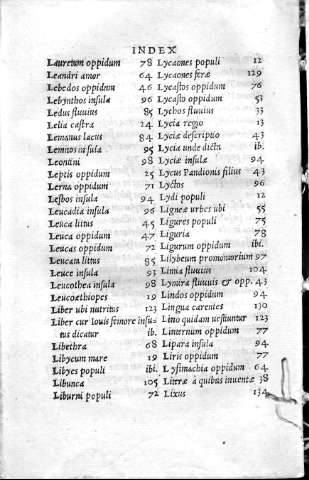 INDEX
Lauretum oppidum 78
Leandri amor 64
Lebedos oppidum 46
Lebynthos insula 96
Ledus fluuius 85
Lelia castra 24
Lemanus lacus 84
Lemnos insula 95
Leontini 98
Leptis oppidum 25
Lerna oppidum 71
Lesbos insula 94
Leucadia insula 96
Leuca littus 45
Leucas oppidum 47
Leucas oppidum 72
Leucam litus 85
Leuce insula 93
Leucothea insula 98
Leucoæthiopes 19
Liber ubi nutritus 123
Liber cur Iouis femore insu
tus dicatur ib.
Libethra 68
Libycum mare 19
Libyes populi ibi.
Libunca 105
Liburni populi 72
Lycaones populi 12
Lycaones feræ 129
Lycastos oppidum 76
Lycasto oppidum 53
Lychos fluuius 33
Lycia regio 13
Lyciæ descriptio 43
Lycia unde dicta ib.
Lyciæ insulæ 94
Lycus Pandionis filius 43
Lyctos 96
Lydi populi 12
Ligneæ urbes ubi 55
Ligures populi 75
Liguria 78
Ligurum oppidum ibi.
Lilybeum promontorium 97
Limia fluuius 104
Lymira fluuius & opp. 43
Lindos oppidum 94
Lingua carentes 130
Lino quidam uestiuntur 123
Linternum oppidum 77
Lipara insula 94
Liris oppidum 77
Lysimachia oppidum 64
Litræ à quibus inuentæ 38
Lixus 134